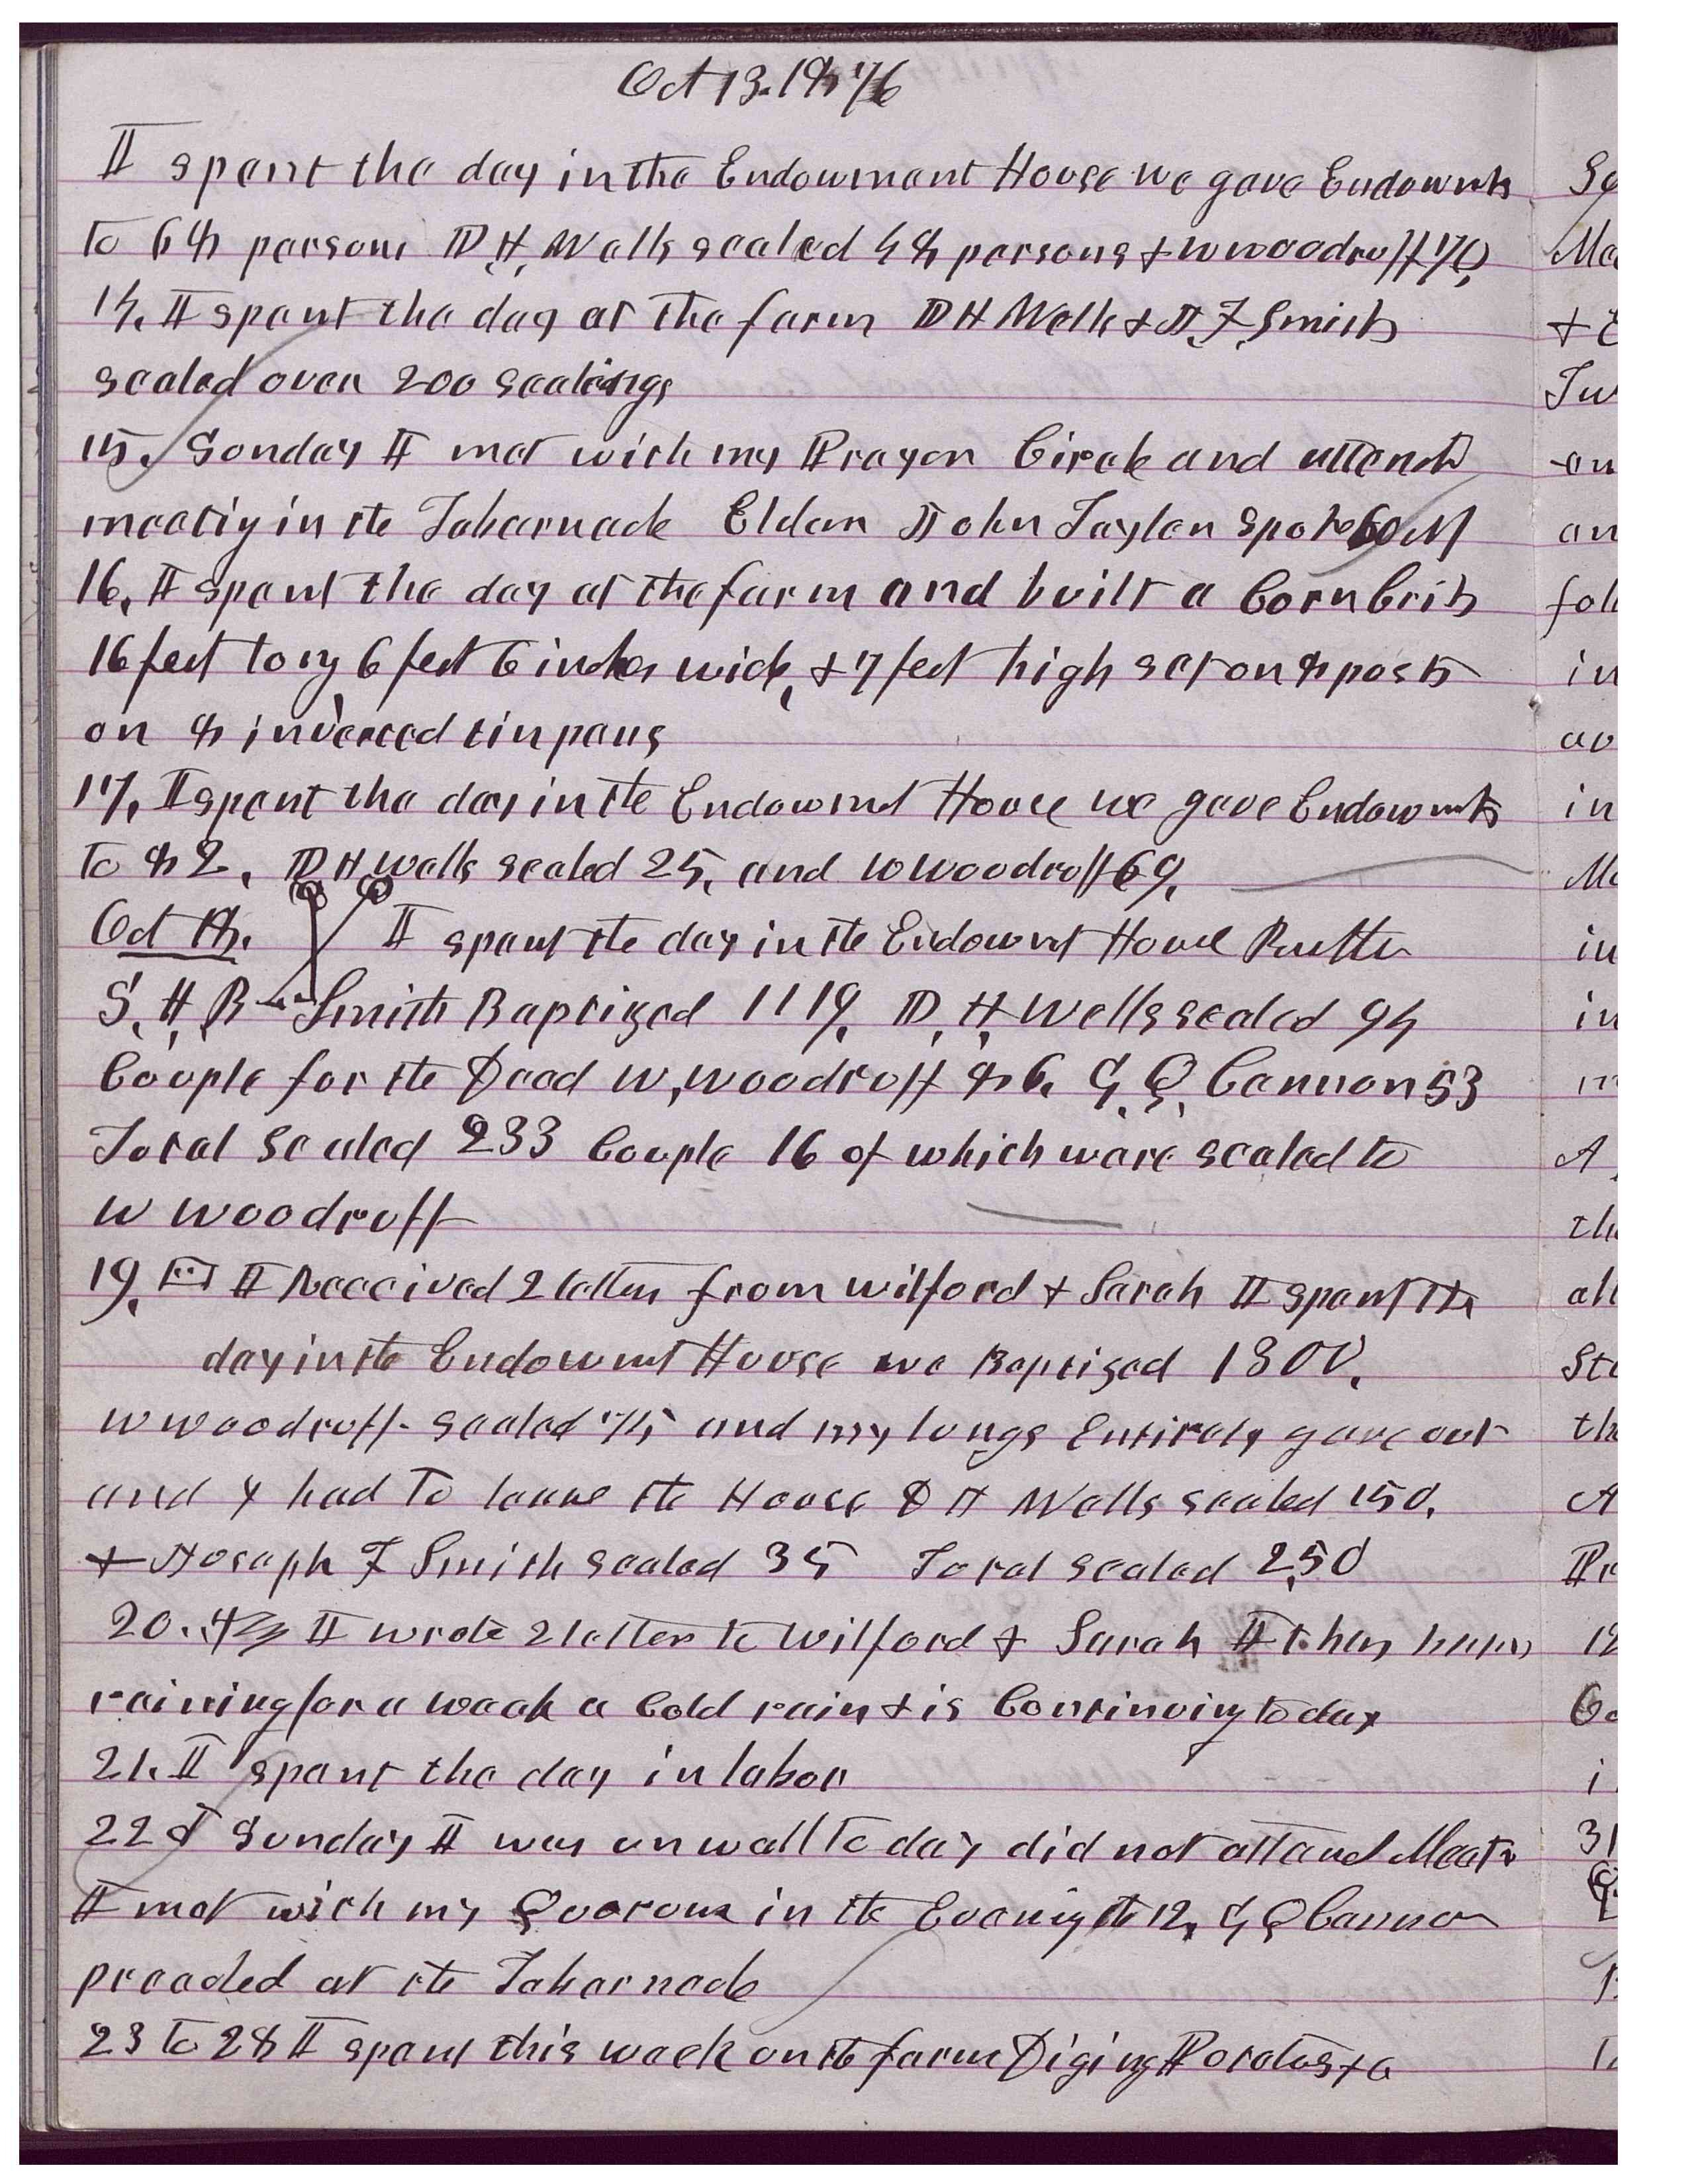 Oct 13. 1876
I spent the day in the Endowment House we gave Endowmts
to 68 persons D. H. Wells sealed 48 persons & W Woodruff 70,
14. I spent the day at the farm D H Wells & J. F. Smith
sealed over 200 sealings
15. Sunday I met with my Prayer Circle and attend
meetig in the Tabernacle Elder John Taylor spoke 60 M
16, I spent the day at the farm and built a Corn Crib
16 feet long 6 feet 6 inches wide, & 7 feet high set on 8 posts
on 8 inverted tin pans
17, I spent the day in the Endowmt House we gave Endowmts
to 82, D H Wells sealed 25, and W Woodruff 69,
Oct 18. I spent the day in the Endowmt House
S, H, B Smith Baptized 1119, D, H, Wells sealed 94
Couple for the Dead W, Woodruff 86, G, Q, Cannon 53
Total Sealed 233 Couple 16 of which were sealed to
W Woodruff
19, I Received 2 letters from Wilford & Sarah I spent the
day in the Endowmt House we Baptized 1300,
W Woodruff sealed 75 and my lungs Entirely gave out
and I had to leave the House D H Wells sealed 150,
& Joseph F Smith sealed 35 Total sealed 250
20. I wrote 2 letters to Wilford & Sarah It has been
raining for a week a Cold rain & is Continuing to day
21. I spent the day in labor
22d Sunday I was unwell to day did not attend Meetg
I met with my Quorum in the Evenig the 12, G Q Cannon
preached at the Tabernacle
23 to 28 I spent this week on the farm Diging Potatoes & c